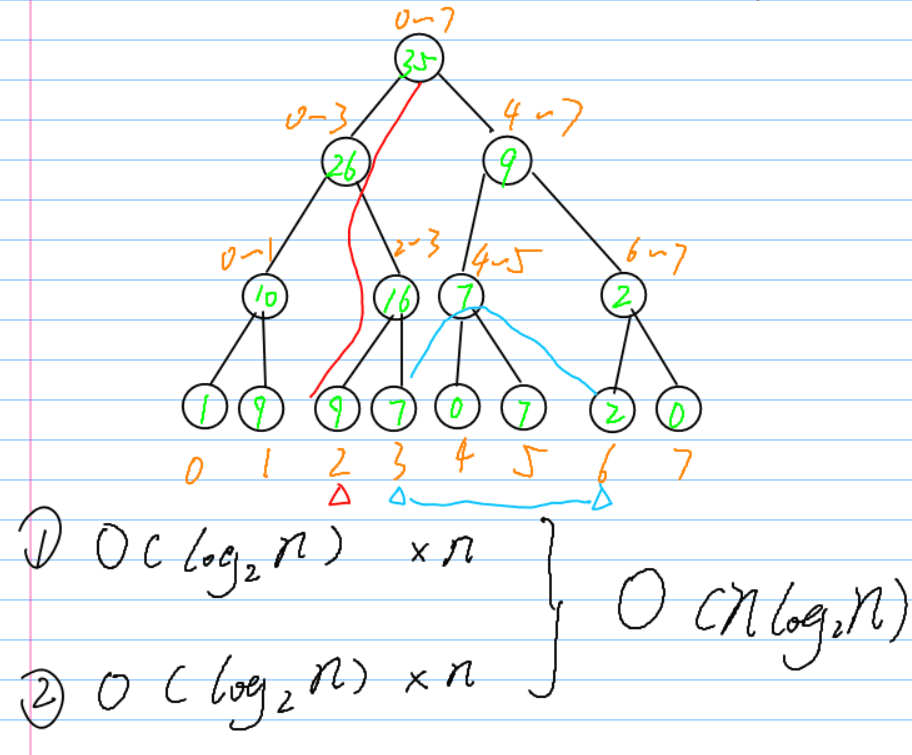 0~7
35
0~3 4~7
26 9
0~1 2~3 4~5 6~7
10 16 7 2
1 9 9 7 0 7 2 0
0 1 2 3 4 5 6 7
① O(log₂n) ×n
O(nlog₂n)
② O(log₂n) ×n